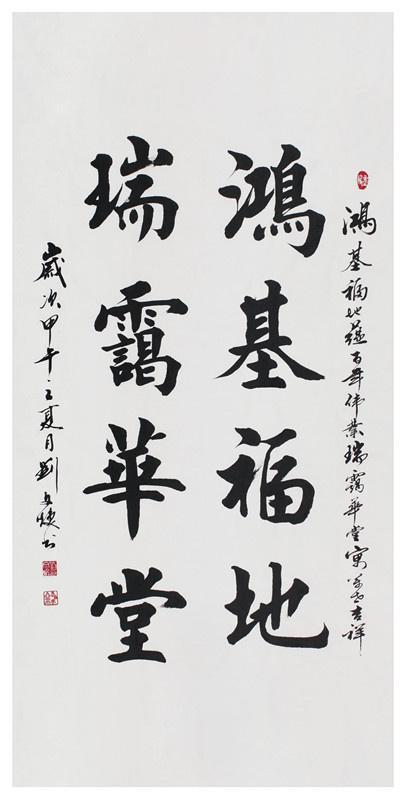 鴻基福地蕴百年伟業瑞靄華堂寓吉祥
鴻基福地
瑞靄華堂
歲次甲午之夏月劉文焕书